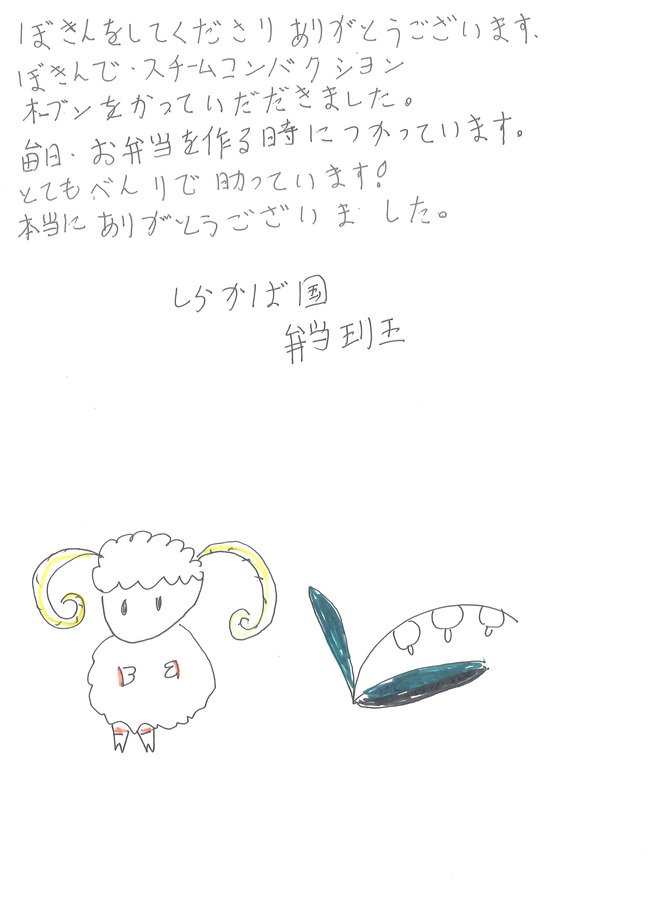 ぼきんをしてくださり ありがとうございます。
ぼきんで・スチームコンバクション
オーブンをかっていだだきました。
毎日・お弁当を作る時につかっています。
とてもべんりで助っています!
本当にありがとうございました。
しらかば園
弁当班